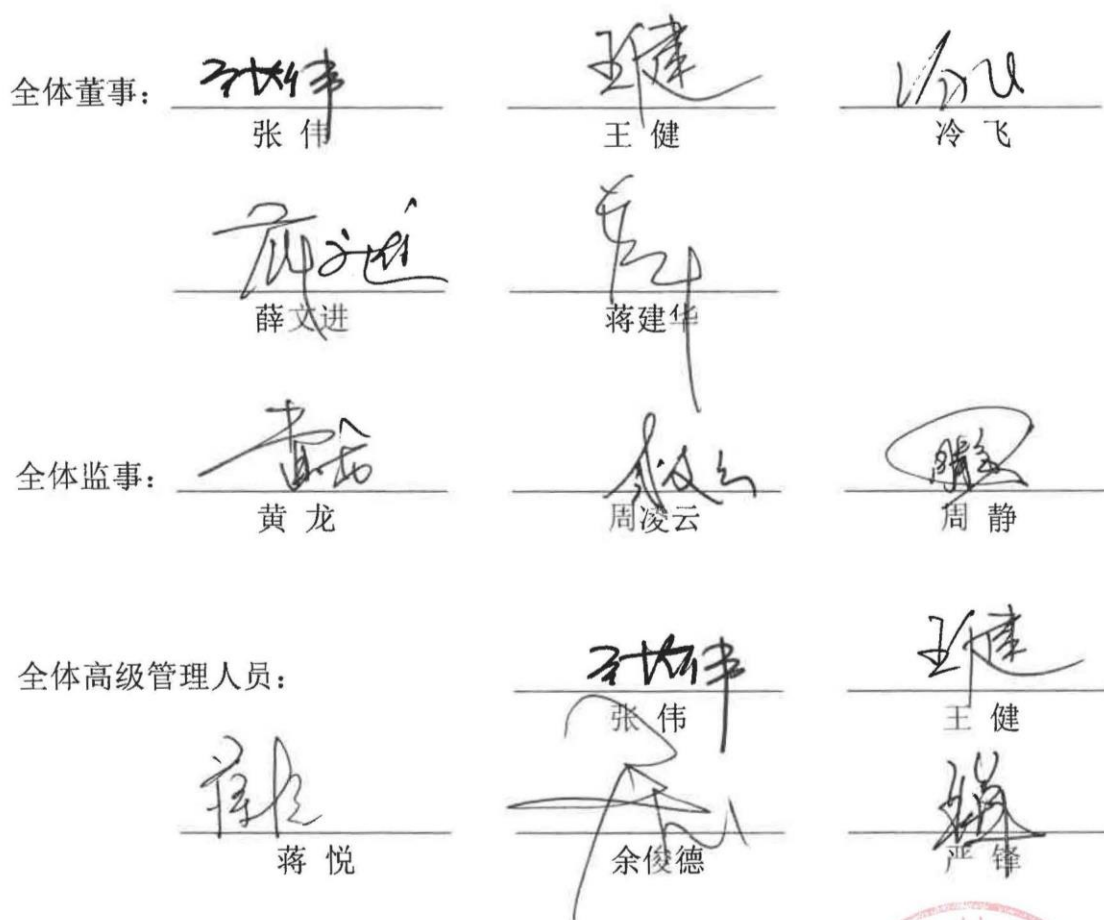 全体董事:
张 伟 王 健 冷 飞
薛文进 蒋建华
全体监事:
黄 龙 周凌云 周 静
全体高级管理人员:
张 伟 王 健
蒋 悦 余俊德 严 锋